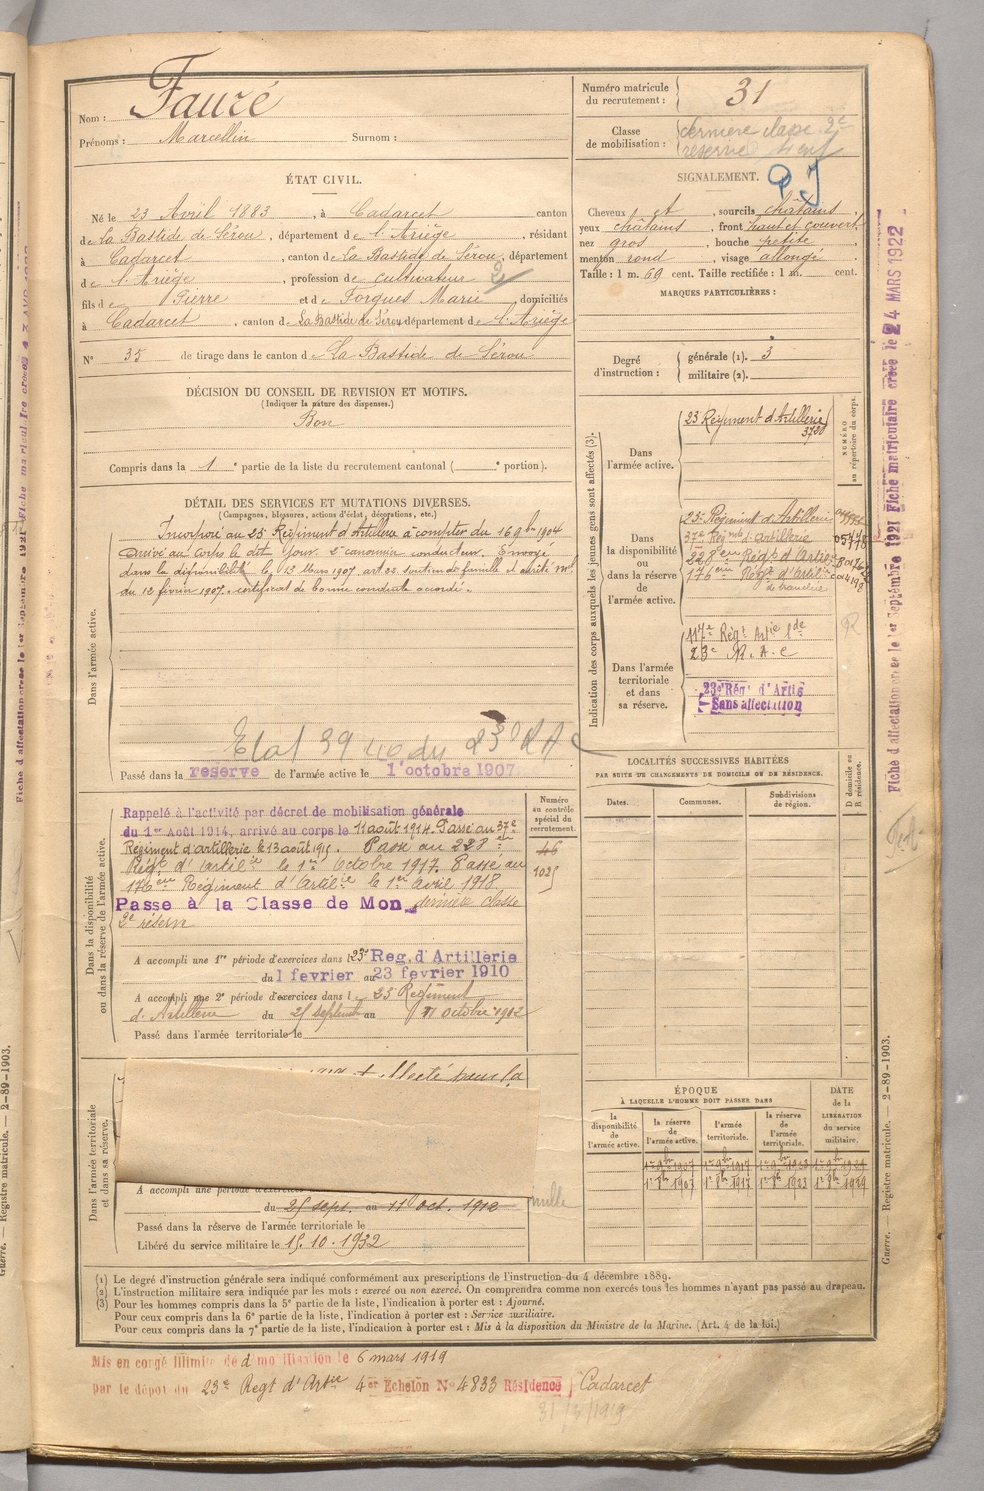 Nom : Fauré
Prénoms : Marcellin Surnom :
ÉTAT CIVIL.
Né le 23 Avril 1883, à Cadarcet canton
de La Bastide de Sérou, département de l'Ariège, résidant
à Cadarcet, canton de La Bastide de Sérou, département
de l'Ariège, profession de cultivateur 2
fils de Pierre et de Forgues Marie domiciliés
à Cadarcet, canton de La Bastide de Sérou département de l'Ariège
N° 35 de tirage dans le canton de La Bastide de Sérou
DÉCISION DU CONSEIL DE REVISION ET MOTIFS.
(Indiquer la nature des dispenses.)
Bon
Compris dans la 1e partie de la liste du recrutement cantonal ( e portion).
DÉTAIL DES SERVICES ET MUTATIONS DIVERSES.
(Campagnes, blessures, actions d'éclat, décorations, etc.)
Dans l'armée active.
Incorporé au 23e Régiment d'Artillerie à compter du 16 9bre 1904
arrivé au corps le dit jour. 2e canonnier conducteur. Envoyé
dans la disponibilité le 13 Mars 1907 art. 22. soutien de famille et arrêté ml
du 12 février 1907. certificat de bonne conduite accordé.
Etat 39 du 23e RA
Passé dans la reserve de l'armée active le 1 octobre 1907
Dans la disponibilité
ou dans la réserve de l'armée active.
Numéro
au contrôle
spécial du
recrutement.
46
1025
Rappelé à l'activité par décret de mobilisation générale
du 1er Août 1914, arrivé au corps le 11 août 1914. Passé au 37e
Régiment d'artillerie le 13 août 1915. Passé au 228 em
Régt d'Artilie le 1er Octobre 1917. Passé au
176em Régiment d'Artilie le 1er avril 1918
Passe à la Classe de Mon dernière classe
2e réserve
A accompli une 1re période d'exercices dans l 23e Reg. d'Artillerie
du 1 fevrier au 23 fevrier 1910
A accompli une 2e période d'exercices dans l e 23 Régiment
d'Artillerie du 25 septembre au 11 octobre 1912
Passé dans l'armée territoriale le
Dans l'armée territoriale
et dans sa réserve.
A accompli une période d'exercices
du 25 sept. au 11 oct. 1912 nulle
Passé dans la réserve de l'armée territoriale le
Libéré du service militaire le 15.10.1932
Numéro matricule
du recrutement : 31
Classe
de mobilisation : dernière classe 2e
réserve
SIGNALEMENT.
Cheveux et, sourcils châtains,
yeux châtains, front haut et couvert
nez gros, bouche petite,
menton rond, visage allongé.
Taille : 1 m. 69 cent. Taille rectifiée : 1 m. cent.
MARQUES PARTICULIÈRES :
Degré
d'instruction :
générale (1). 3
militaire (2).
Indication des corps auxquels les jeunes gens sont affectés (3).
NUMÉRO
au répertoire du corps.
Dans
l'armée active.
23 Régiment d'Artillerie
3720
Dans
la disponibilité
ou
dans la réserve
de
l'armée active.
23e Régiment d'Artillerie
37e Régiment d'Artillerie
228em Régt d'Artie
176em Régt d'Artie
de tranchée
Dans l'armée
territoriale
et dans
sa réserve.
117e Régt Artie Lde
23e R.A.C
23e Rég' d'Artie
Sans affectation
LOCALITÉS SUCCESSIVES HABITÉES
PAR SUITE DE CHANGEMENTS DE DOMICILE OU DE RÉSIDENCE.
Dates. Communes. Subdivisions
de région.
D domicile ou
R résidence.
ÉPOQUE
À LAQUELLE L'HOMME DOIT PASSER DANS
la
disponibilité
de
l'armée active.
la réserve
de
l'armée active.
l'armée
territoriale.
la réserve
de
l'armée
territoriale.
DATE
de la
LIBÉRATION
du service
militaire.
1er 8bre 1907 1er 8bre 1917 1er 8bre 1923 1er 8bre 1929
(1) Le degré d'instruction générale sera indiqué conformément aux prescriptions de l'instruction du 4 décembre 1889.
(2) L'instruction militaire sera indiquée par les mots : exercé ou non exercé. On comprendra comme non exercés tous les hommes n'ayant pas passé au drapeau.
(3) Pour les hommes compris dans la 5e partie de la liste, l'indication à porter est : Ajourné.
Pour ceux compris dans la 6e partie de la liste, l'indication à porter est : Service auxiliaire.
Pour ceux compris dans la 7e partie de la liste, l'indication à porter est : Mis à la disposition du Ministre de la Marine. (Art. 4 de la loi.)
Mis en congé illimité de démobilisation le 6 mars 1919
par le dépot du 23e Regt d'Arter 4er Echelon N° 4833 Résidence Cadarcet
31/3/1919
Fiche d'affectation créée le 1er Septembre 1921 Fiche matriculaire créée le 24 MARS 1922
Guerre. — Registre matricule. — 2-89-1903.